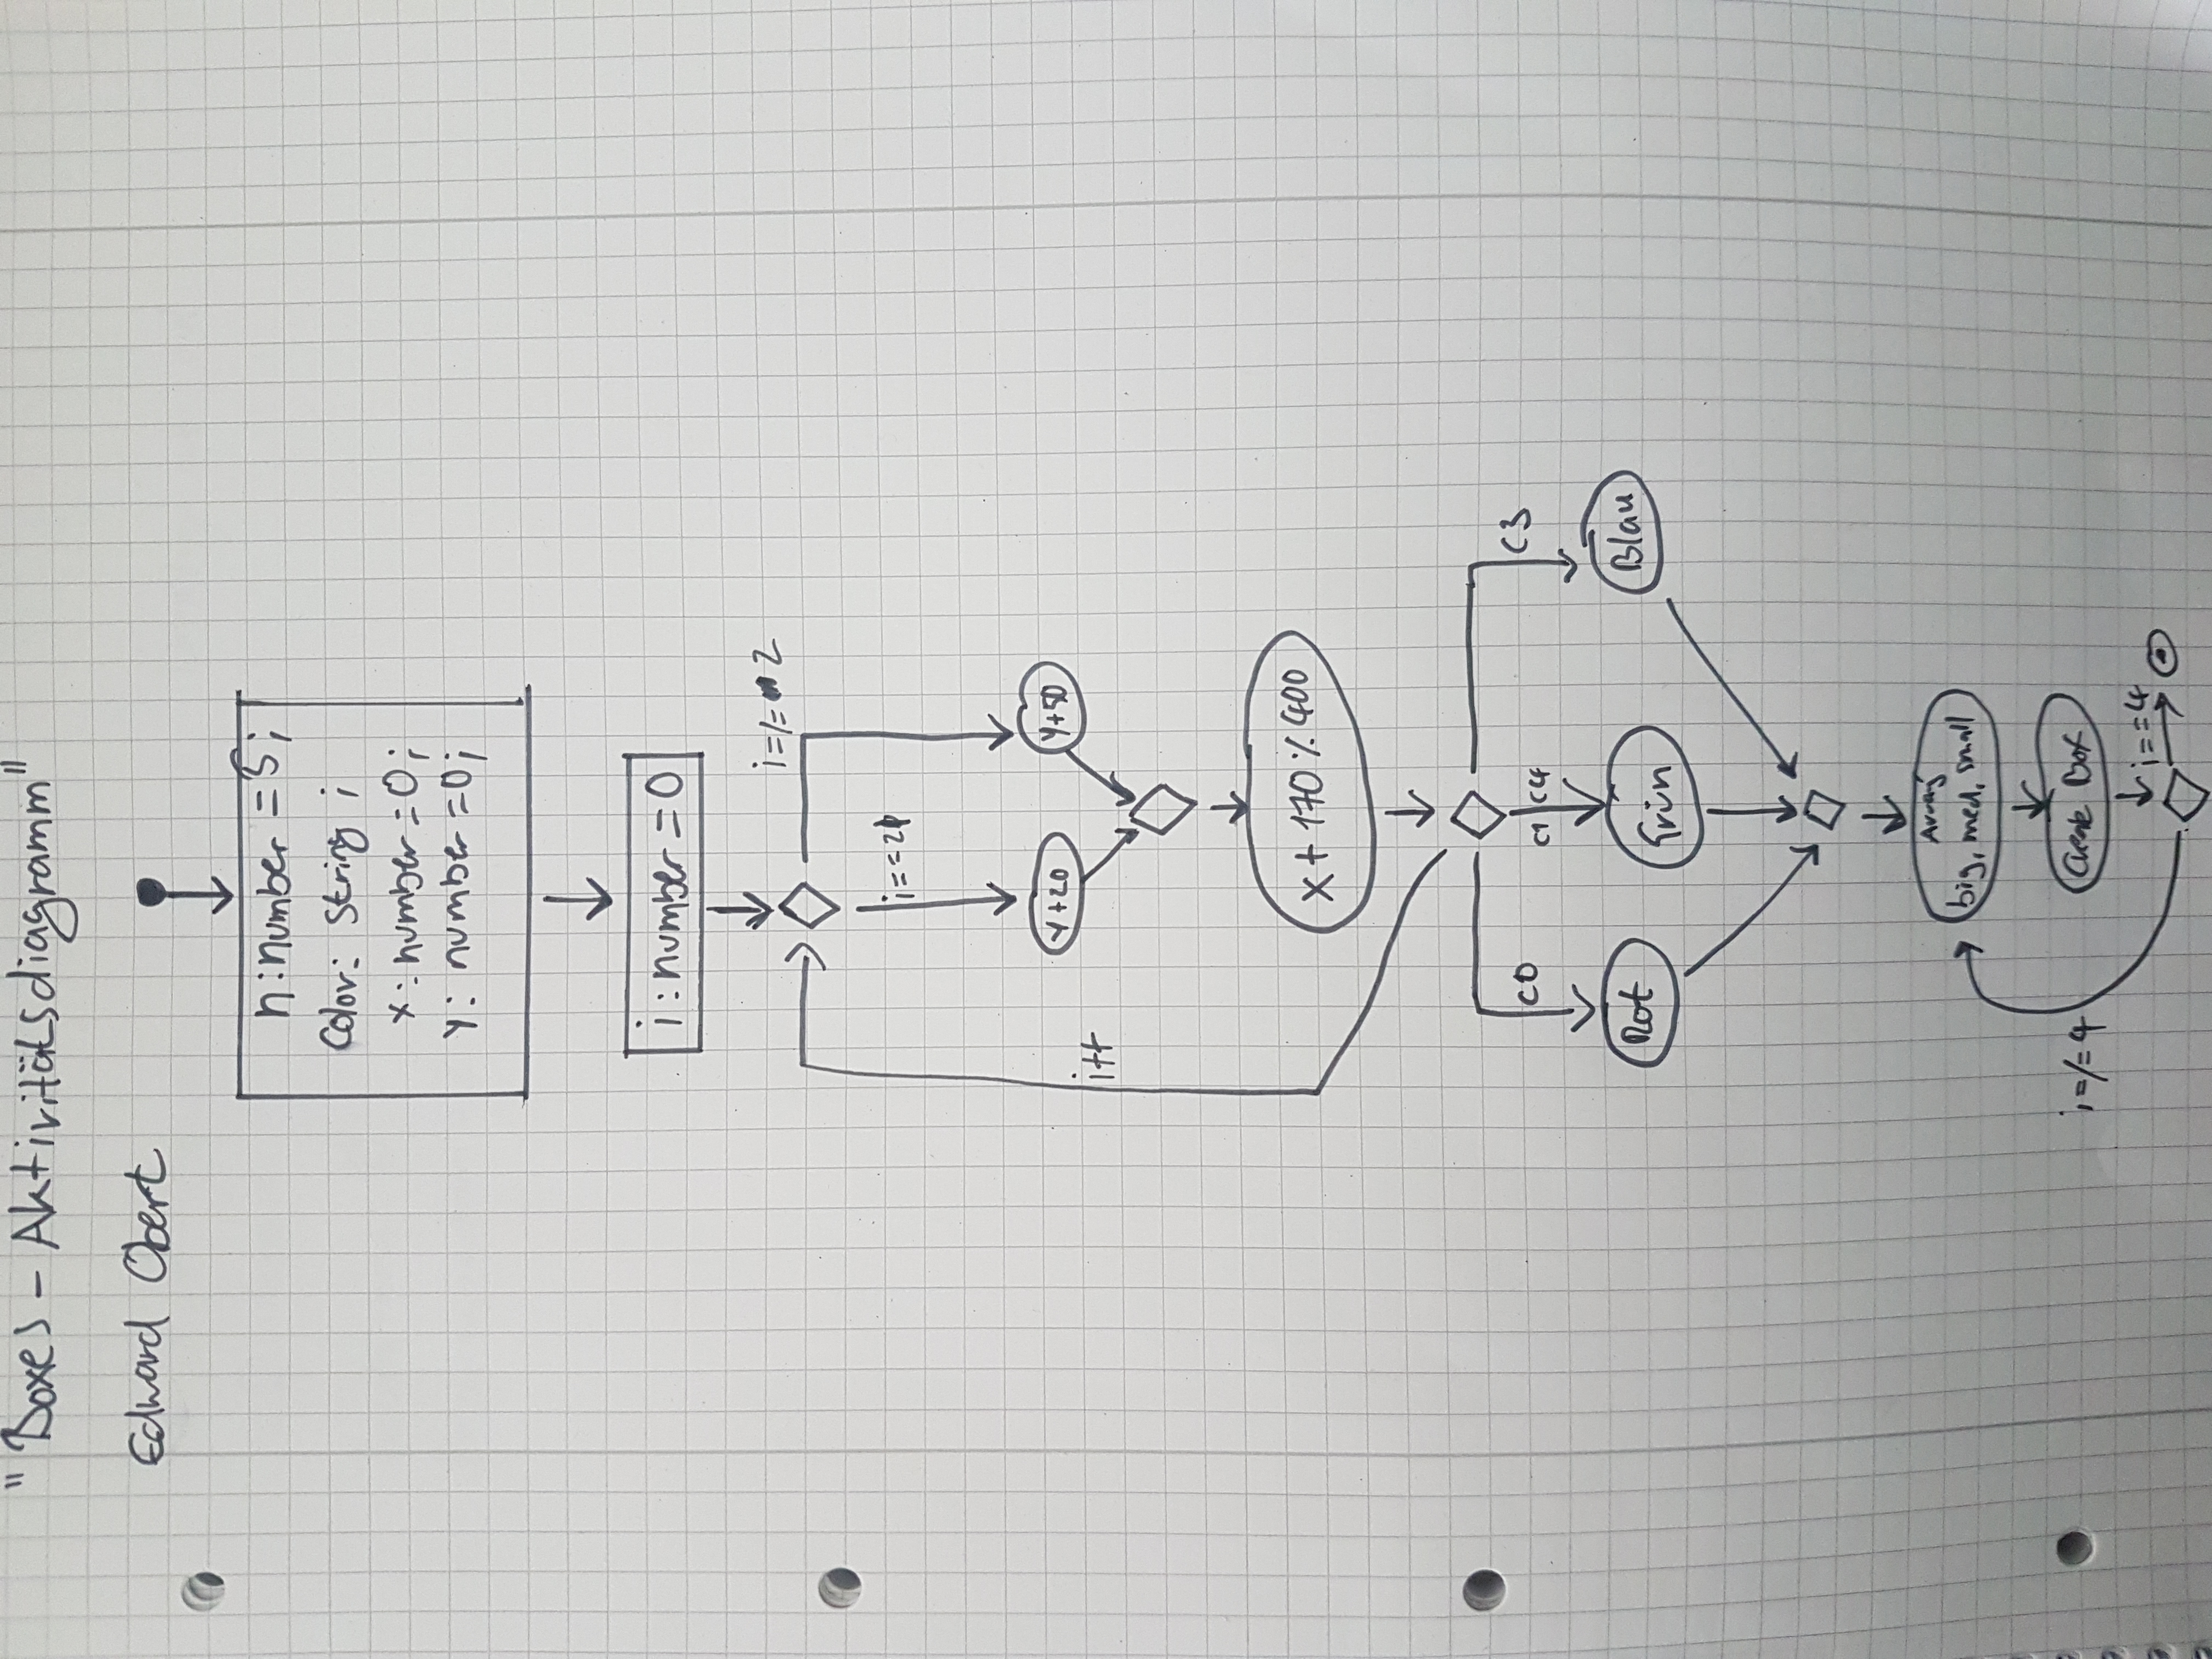 "Boxes - Aktivitätsdiagramm"
Edward Obert
n:number = 5;
Color: string ;
x: number = 0;
y: number = 0;
i : number = 0
i=/= 2
i==2
y+20
y+50
i++
x + 170 % 400
C0
C1 C4
C3
Rot
Grün
Blau
Array
big, med, small
Create Box
i=/=4
i==4